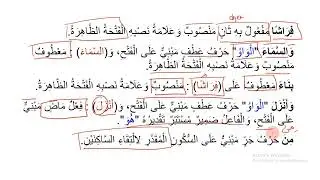 فِرَاشًا مَفْعُولٌ بِهِ ثَانٍ مَنْصُوبٌ وَعَلَامَةُ نَصْبِهِ الْفَتْحَةُ الظَّاهِرَةُ.
وَالسَّمَاءَ "الْوَاوُ" حَرْفُ عَطْفٍ مَبْنِيٌّ عَلَى الْفَتْحِ، وَ(السَّمَاءَ) : مَعْطُوفٌ
مَنْصُوبٌ وَعَلَامَةُ نَصْبِهِ الْفَتْحَةُ الظَّاهِرَةُ.
بِنَاءً مَعْطُوفٌ عَلَى (فِرَاشًا) : مَنْصُوبٌ وَعَلَامَةُ نَصْبِهِ الْفَتْحَةُ الظَّاهِرَةُ.
وَأَنْزَلَ "الْوَاوُ" حَرْفُ عَطْفٍ مَبْنِيٌّ عَلَى الْفَتْحِ، (أَنْزَلَ) : فِعْلٌ مَاضٍ مَبْنِيٌّ
عَلَى الْفَتْحِ، وَالْفَاعِلُ ضَمِيرٌ مُسْتَتِرٌ تَقْدِيرُهُ "هُوَ".
مِنَ حَرْفُ جَرٍّ مَبْنِيٌّ عَلَى السُّكُونِ الْمُقَدَّرِ لِالْتِقَاءِ السَّاكِنَيْنِ.